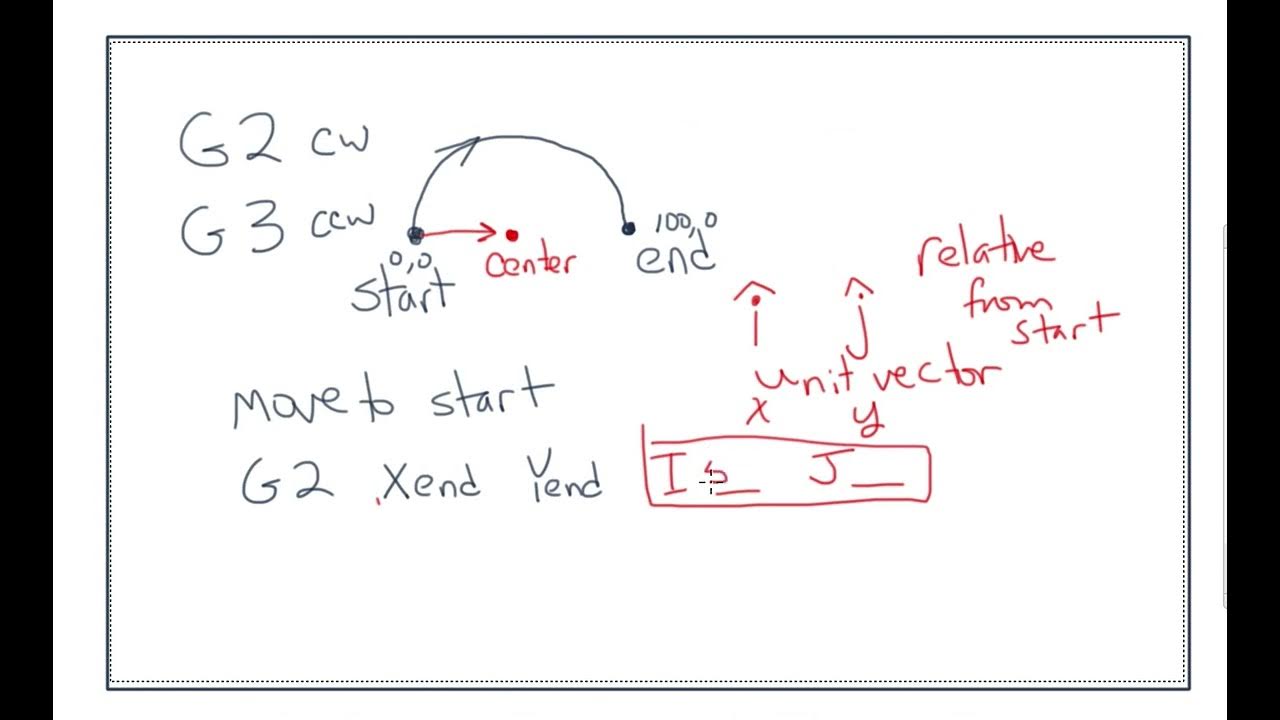 G2 cw
G3 ccw
0,0
start
center
100,0
end
relative
from
start
i j
unit vector
x y
move to start
G2 Xend Yend I 5_ J__